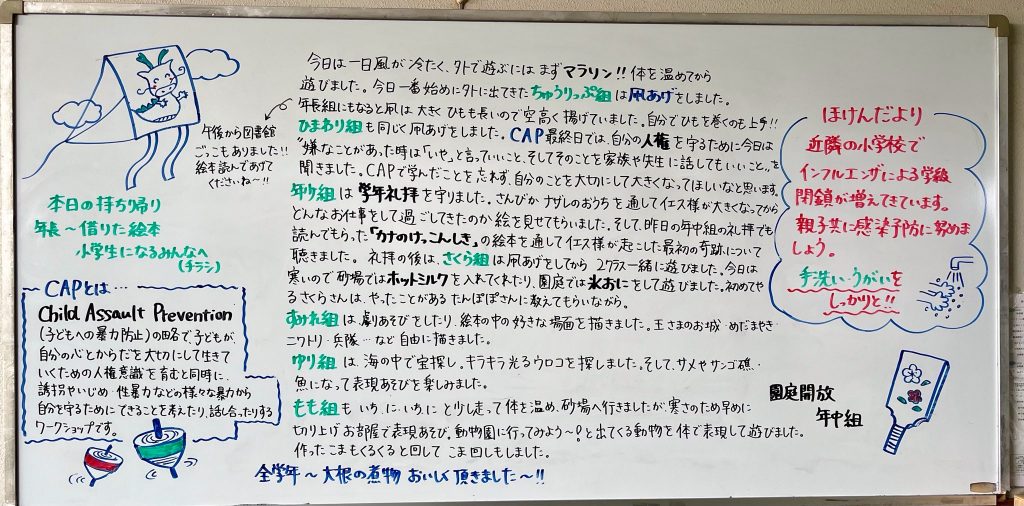 午後から図書館
ごっこもありました!!
絵本読んであげて
くださいね〜!!
本日の持ち帰り
年長〜借りた絵本
小学生になるみんなへ
(チラシ)
CAPとは…
Child Assault Prevention
(子どもへの暴力防止)の略で、子どもが、
自分の心とからだを大切にして生きて
いくための人権意識を育むと同時に、
誘拐やいじめ・性暴力などの様々な暴力から
自分を守るためにできることを考えたり、話し合ったりする
ワークショップです。
今日は一日風が冷たく、外で遊ぶにはまずマラソン!!体を温めてから
遊びました。今日一番始めに外に出てきたちゅうりっぷ組は凧あげをしました。
年長組にもなると凧は大きくひもも長いので空高く揚げていました。自分でひもを巻くのも上手!!
ひまわり組も同じく凧あげをしました。CAP最終日では、自分の人権を守るために今日は
"嫌なことがあった時は「いや」と言っていいこと、そしてそのことを家族や先生に話してもいいこと。"を
聞きました。CAPで学んだことを忘れず、自分のことを大切にして大きくなってほしいなと思います。
年少組は学年礼拝を守りました。さんびか ナザレのおうちを通してイエス様が大きくなってから
どんなお仕事をして過ごしてきたのか絵を見せてもらいました。そして、昨日の年中組の礼拝でも
読んでもらった「カナのけっこんしき」の絵本を通してイエス様が起こした最初の奇跡について
聴きました。礼拝の後は、さくら組は凧あげをしてから2クラス一緒に遊びました。今日は
寒いので砂場ではホットミルクを入れてくれたり、園庭では氷おにをして遊びました。初めてや
るさくらさんは、やったことがあるたんぽぽさんに教えてもらいながら。
すみれ組は、劇あそびをしたり、絵本の中の好きな場面を描きました。王さまのお城・めだまやき・
ニワトリ・兵隊…など自由に描きました。
ゆり組は、海の中で宝探し。キラキラ光るウロコを探しました。そして、サメやサンゴ礁・
魚になって表現あそびを楽しみました。
もも組も いち、に・いち、に と少し走って体を温め、砂場へ行きましたが、寒さのため早めに
切り上げお部屋で表現あそび。動物園に行ってみよう〜!と出てくる動物を体で表現して遊びました。
作ったこまもくるくると回して こま回しもしました。
全学年〜大根の煮物 おいしく頂きました〜!!
ほけんだより
近隣の小学校で
インフルエンザによる学級
閉鎖が増えてきています。
親子共に感染予防に努めま
しょう。
手洗い・うがいを
しっかりと!!
園庭開放
年中組